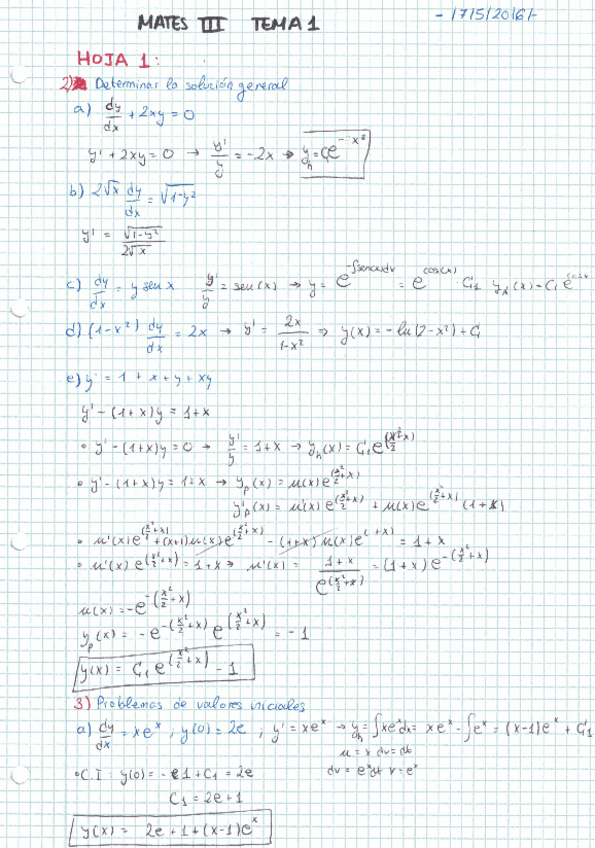 MATES III TEMA 1
-17/5/2016/-
HOJA 1:
2) Determinar la solución general
a) dy/dx + 2xy = 0
y' + 2xy = 0 → y'/y = -2x → y_h = C e^{-x²}
b) 2√x dy/dx = √(1-y²)
y' = √(1-y²)/(2√x)
c) dy/dx = y sen x y'/y = sen(x) → y = e^{-∫sen(x)dx} = e^{cos(x)} C₁ y_h(x) = C₁ e
d) (1-x²) dy/dx = 2x → y' = 2x/(1-x²) ⇒ y(x) = -ln(2-x²) + C₁
e) y' = 1 + x + y + xy
y' - (1+x)y = 1+x
• y' - (1+x)y = 0 → y'/y = 1+x → y_h(x) = C₁e^{(x²/2 + x)}
• y' - (1+x)y = 1+x → y_p(x) = u(x) e^{(x²/2 + x)}
y'_p(x) = u'(x) e^{(x²/2 + x)} + u(x) e^{(x²/2 + x)} (1+x)
• u'(x) e^{(x²/2 + x)} + (x+1) u(x) e^{(x²/2 + x)} - (1+x) u(x) e^{( +x)} = 1+x
• u'(x) e^{(x²/2 + x)} = 1+x → u'(x) = (1+x)/e^{(x²/2 + x)} = (1+x) e^{-(x²/2 + x)}
u(x) = -e^{-(x²/2 + x)}
y_p(x) = -e^{-(x²/2 + x)} e^{(x²/2 + x)} = -1
y(x) = C₁ e^{(x²/2 + x)} - 1
3) Problemas de valores iniciales
a) dy/dx = xe^x ; y(0) = 2e ; y' = xe^x → y_h = ∫xe^x dx = xe^x - ∫e^x = (x-1)e^x + C₁
u = x du = dt
dv = e^x dt v = e^x
• C.I : y(0) = -1 + C₁ = 2e
C₁ = 2e + 1
y(x) = 2e + 1 + (x-1)e^x